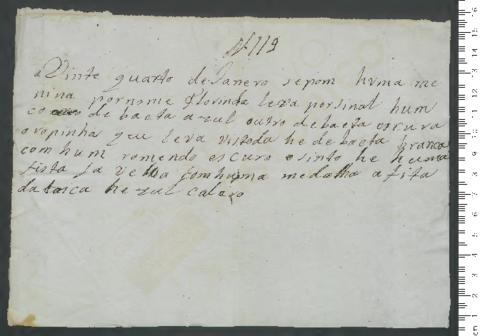 N 119
a Vinte quarto de Janero se pom huma me
nina por nome Florinda leva por sinal hum
de baeta azul outro de baeta escura
a ropinha que leva vistida he de baeta branca
com hum remendo escuro o sinto he huma
fista ja velha com huma medalha a fita
da he zul calaro